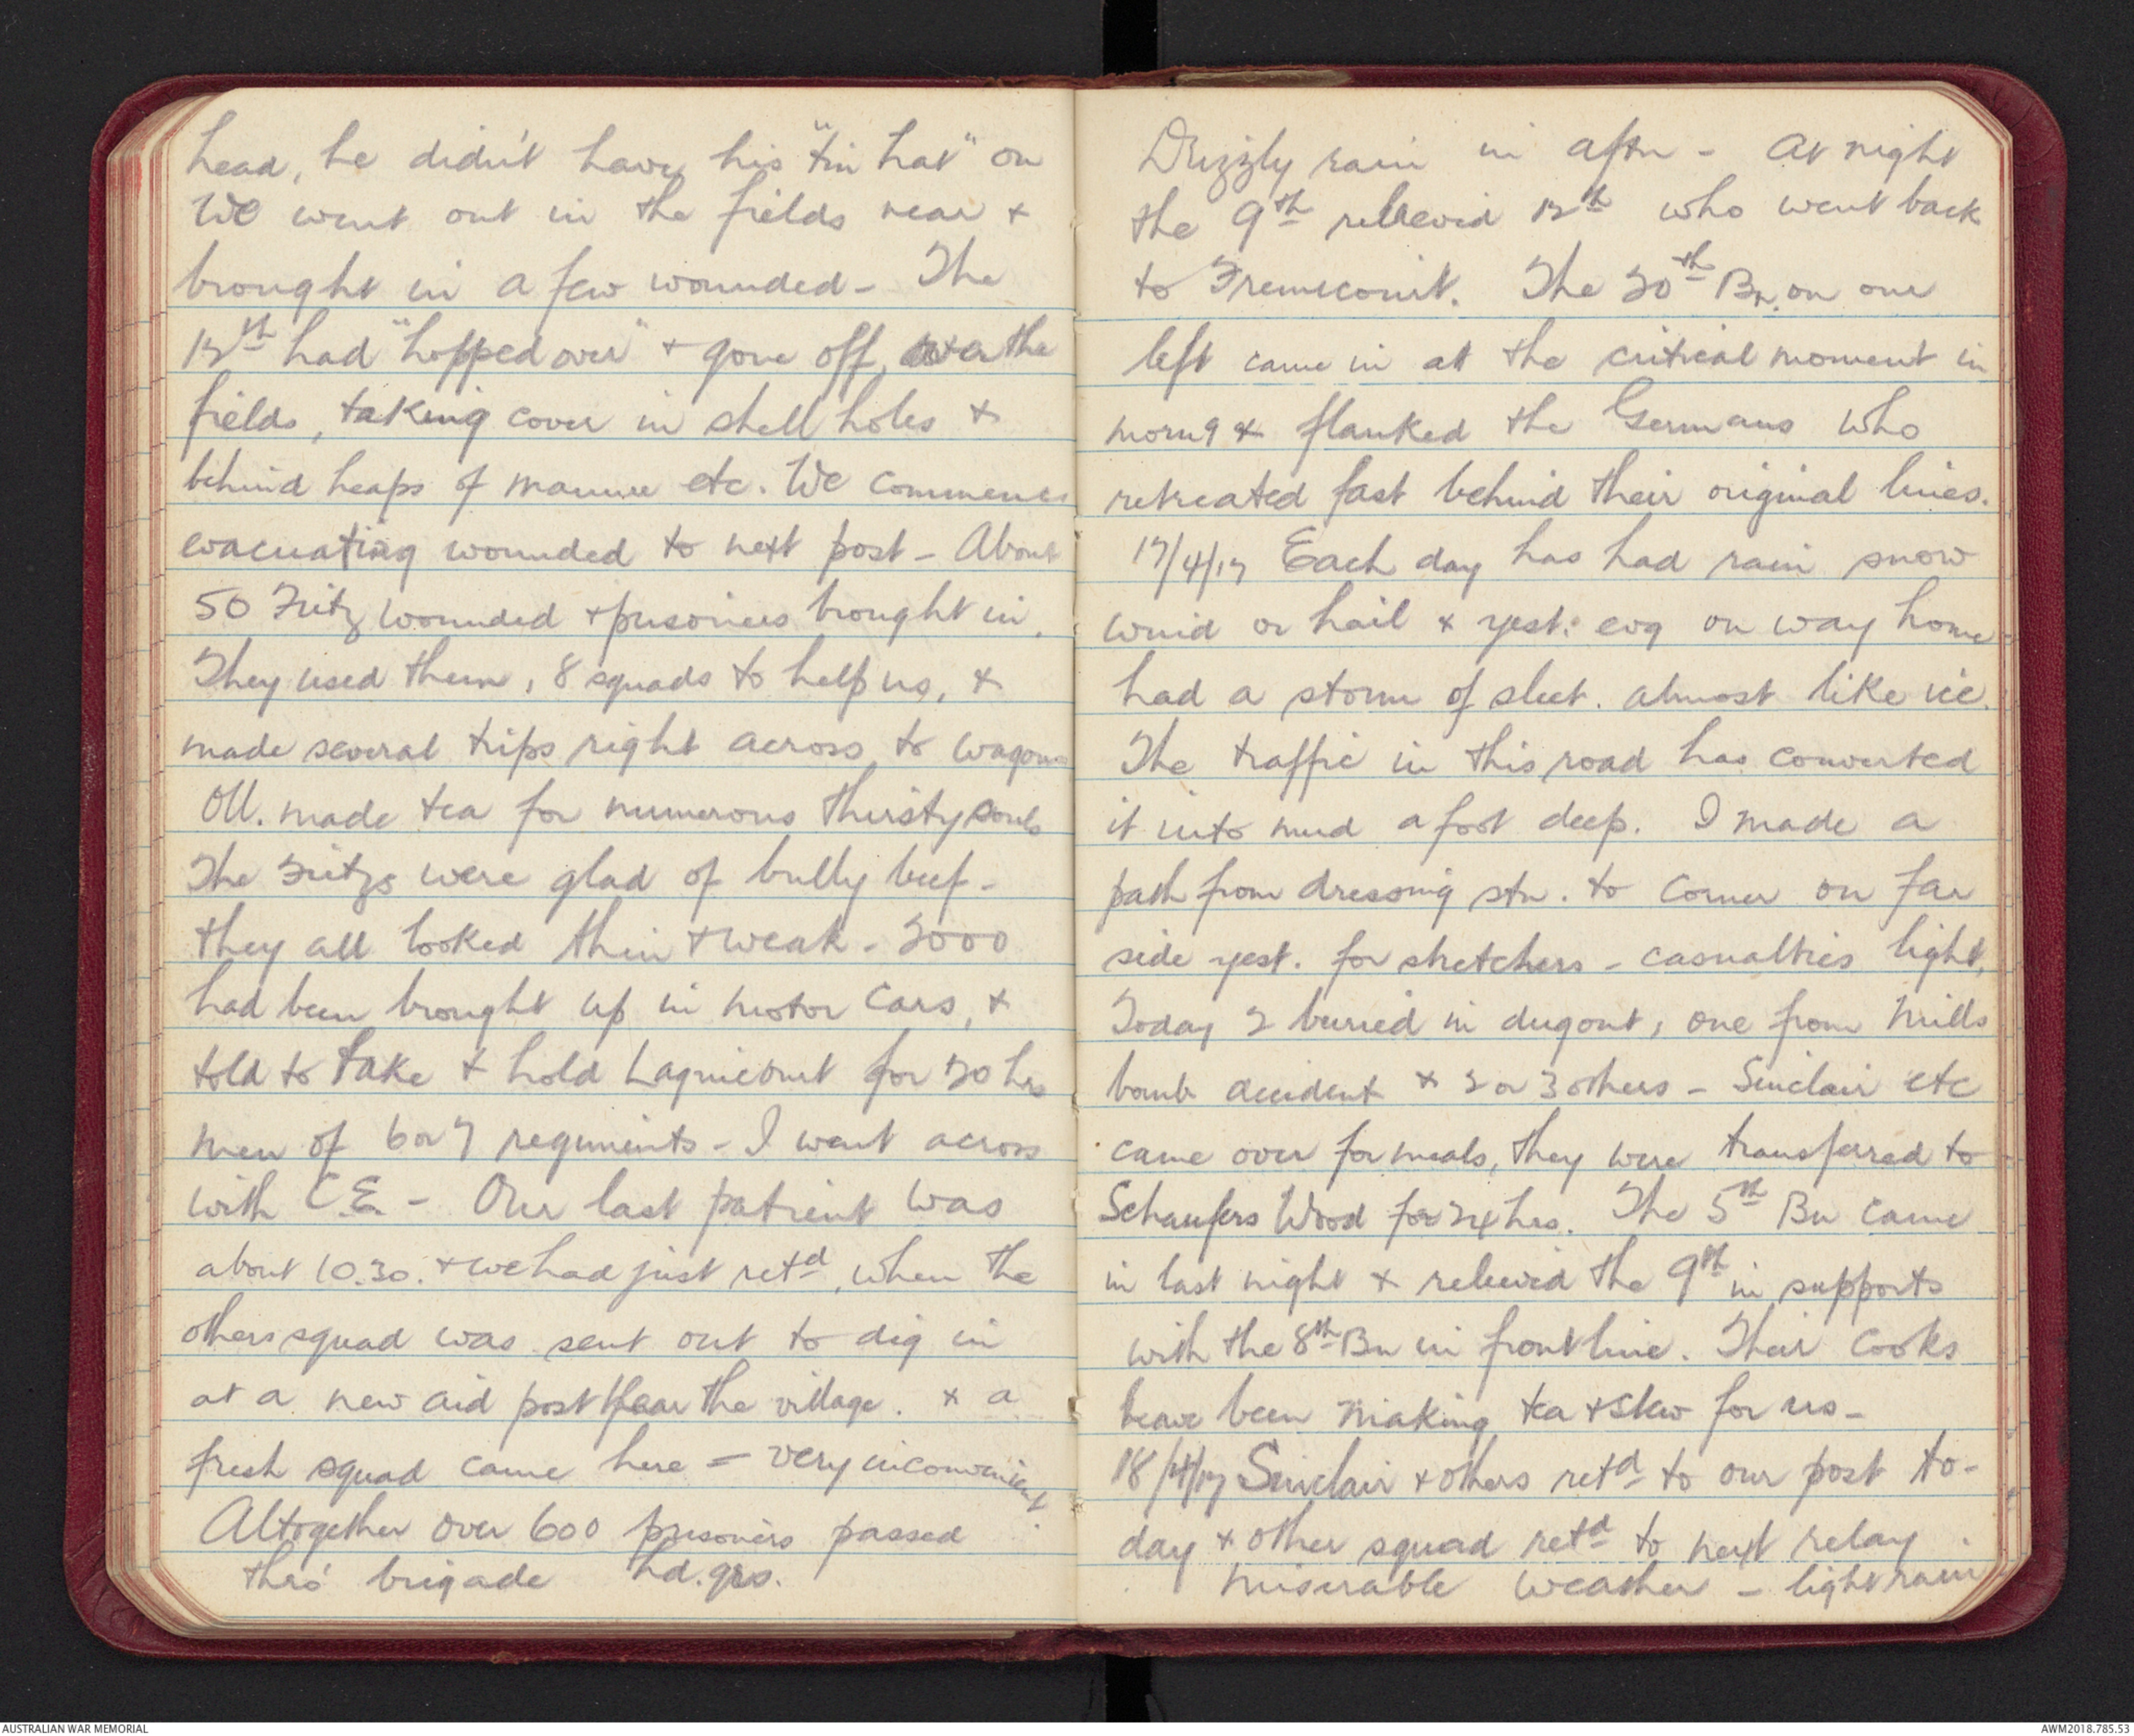 head, he didn't have his "tin hat" on
We went out in the fields near +
brought in a few wounded - The
12th had "hopped over" + gone off, over the
fields, taking cover in shell holes +
behind heaps of manure etc. We commence
evacuating wounded to next post - About
50 Fritz wounded + prisoners brought in.
They used them, 8 squads to help us, +
made several trips right across to wagons
Oll. made tea for numerous thirsty souls
The Fritzs were glad of bully beef -
they all looked thin + weak - 3000
had been brought up in motor cars, +
told to take + hold Lagnicourt for hrs
men of 6 or 7 regiments - I went across
with C.E. - Our last patient was
about 10.30. + we had just retd, when the
others squad was sent out to dig in
at a new aid post near the village. + a
fresh squad came here = very inconvenient.
Altogether over 600 prisoners passed
thro' brigade hd.qrs.
Drizzly rain in aftn - At night
the 9th relieved 12th who went back
to Fremicourt. The 20th Bn. on our
left came in at the critical moment in
morng + flanked the Germans who
retreated fast behind their original lines.
17/4/17 Each day has had rain snow
wind or hail + yest: evg on way home
had a storm of sleet. almost like ice.
The traffic in this road has converted
it into mud a foot deep. I made a
path from dressing stn. to corner on far
side yest. for stretchers - casualties light,
Today 2 buried in dugout, one from Mills
bomb accident + 2 or 3 others - Sinclair etc
came over for meals, they were transferred to
Schaufers Wood for 24 hrs. The 5th Bn came
in last night + relieved the 9th in supports
with the 8th Bn in front line. Their cooks
have been making tea + stew for us -
18/4/17 Sinclair + others retd to our post to-
day + other squad retd to next relay.
miserable weather - light rain
AUSTRALIAN WAR MEMORIAL
AWM2018.785.53